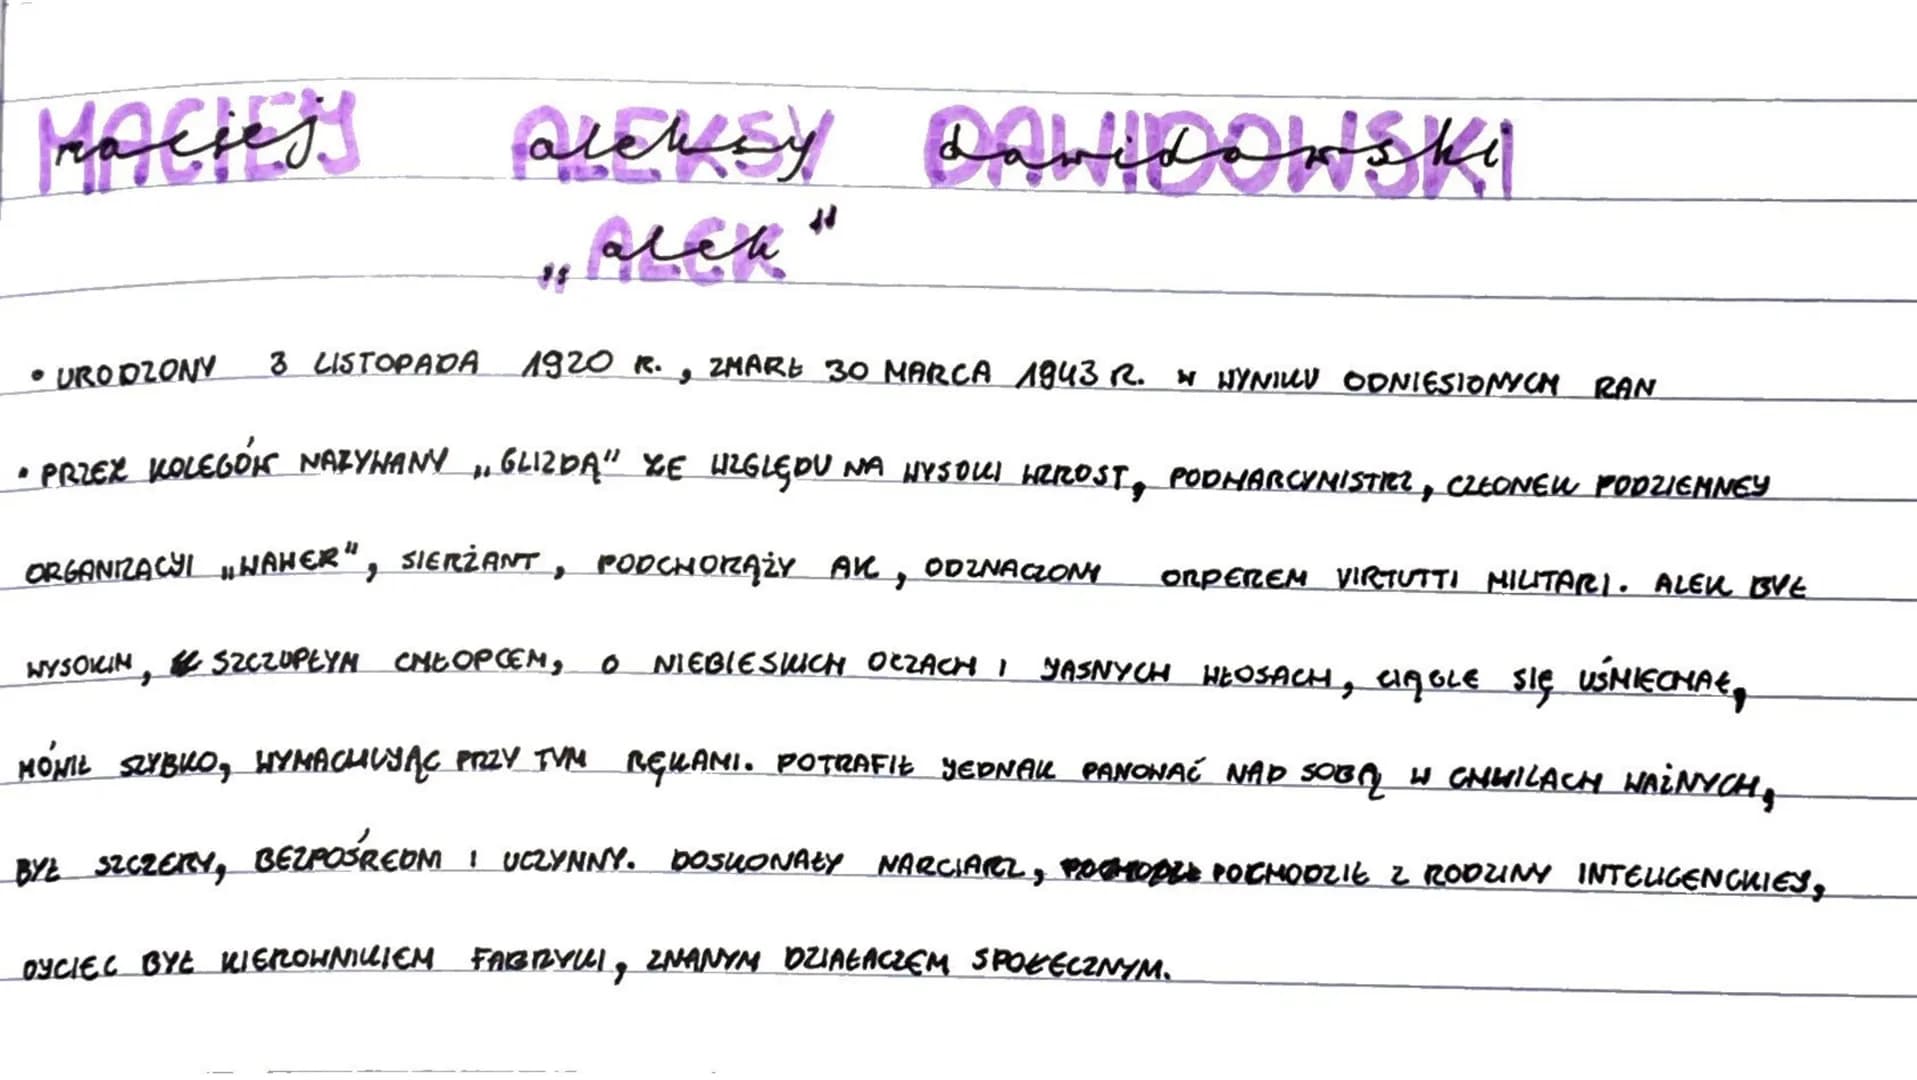 MACIEJ ALEKSY DAWIDOWSKI
„ALEK"
• URODZONY 3 LISTOPADA 1920 R., ZMARŁ 30 MARCA 1943 R. W WYNIKU ODNIESIONYCH RAN
• PRZEZ KOLEGÓW NAZYWANY „GLIZDĄ" ZE WZGLĘDU NA WYSOKI WZROST, PODHARCMISTRZ, CZŁONEK PODZIEMNEJ
ORGANIZACJI „WAWER", SIERŻANT, PODCHORĄŻY AK, ODZNACZONY ORDEREM VIRTUTTI MILITARI. ALEK BYŁ
WYSOKIM, SZCZUPŁYM CHŁOPCEM, O NIEBIESKICH OCZACH I JASNYCH WŁOSACH, CIĄGLE SIĘ UŚMIECHAŁ,
MÓWIŁ SZYBKO, WYMACHUJĄC PRZY TYM RĘKAMI. POTRAFIŁ JEDNAK PANOWAĆ NAD SOBĄ W CHWILACH WAŻNYCH,
BYŁ SZCZERY, BEZPOŚREDNI I UCZYNNY. DOSKONAŁY NARCIARZ, POCHODZIŁ Z RODZINY INTELIGENCKIEJ,
OJCIEC BYŁ KIEROWNIKIEM FABRYKI, ZNANYM DZIAŁACZEM SPOŁECZNYM.